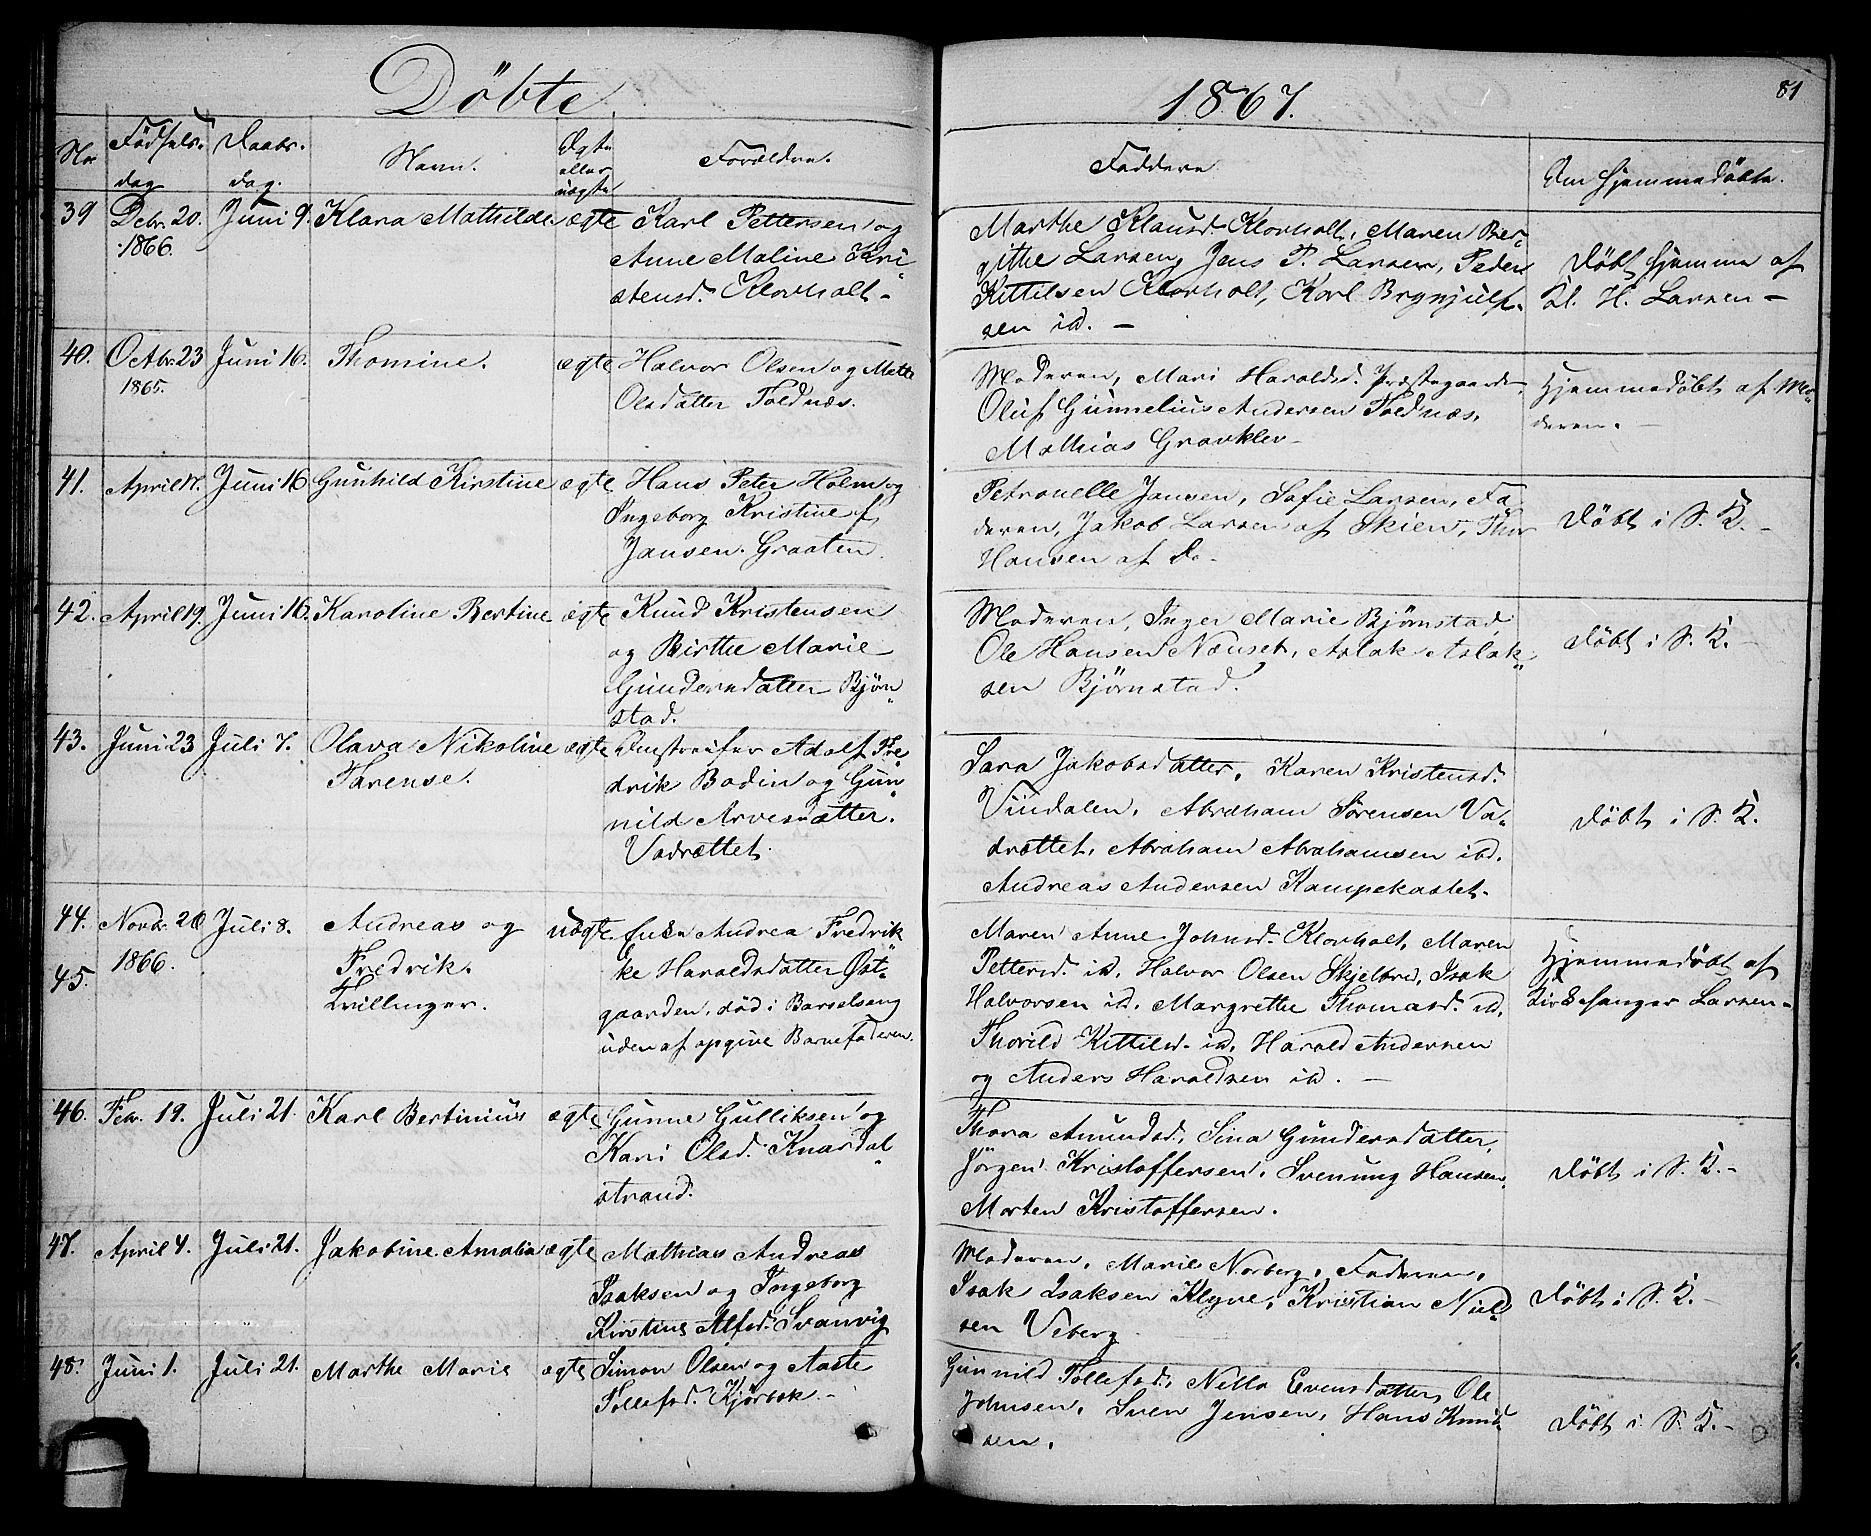 Döbte
1867.
81
Nr
Fødsels-
dag
Daabs-
dag.
Navn.
Ægte
eller
uægte
Forældre.
Faddere
Om hjemmedöbte.
39
Debr. 20.
1866.
Juni 9.
Klara Mathilde
ægte
Karl Pettersen og
Anne Maline Kri-
stensd. Klovholt-
Marthe Klausd. Klovholt, Maren Ber-
githe Larsen, Jens P. Larsen, Peder
Kittilsen Klovholt, Karl Brynjulf-
sen id. -
Döbt hjemme af
Kl. H. Larsen -
40.
Octbr. 23
1865.
Juni 16.
Thomine.
ægte
Halvor Olsen og Mette
Olsdatter Foldnæs.
Moderen, Mari Haroldsd. Præstegaarden
Oluf Gunnelius Andersen Foldnæs,
Mathias Gravklev-
Hjemmedöbt af Mo-
deren. -
41.
April 17.
Juni 16
Gunhild Kirstine
ægte
Hans Peter Holm og
Ingeborg Kristine f.
Jansen. Graaten.
Petronelle Jansen, Sofie Larsen, Fa-
deren, Jakob Larsen af Skien, Thor
Hansen af Do-
Döbt i S. K. -
42.
April 19.
Juni 16.
Karoline Bertine
ægte
Knud Kristensen
og Birthe Marie
Gundersdatter Bjørn-
stad.
Moderen, Inger Marie Bjørnstad,
Ole Hansen Næuset, Aslak Aslak-
sen Bjørnstad.
Döbt i S. K. -
43.
Juni 23
Juli 7.
Olava Nikoline
Tarense.
ægte
Omstreifer Adolf Fre-
drik Bodin og Gun-
nild Arvesdatter.
Vadrættet.
Sara Jakobsdatter, Karen Kristensd.
Viindalen, Abraham Sørensen Va-
drættet, Abraham Abrahamsen ibd.
Andreas Andersen Kampekastet.
Döbt i S. K.
44.
45.
Novbr. 20
1866.
Juli 8.
Andreas og
Fredrik.
Tvillinger.
uægte.
Enke Andrea Fredrik-
ke Haroldsdatter Øst-
gaarden, död i Barselseng
uden at opgive Barnefaderen.
Maren Anne Johnsd. Klovholt, Maren
Pettersd. id, Halvor Olsen Skjelbred, Isak
Halvorsen id. Margrethe Thomasd. id,
Thorild Kittilsd. id, Harald Andersen
og Anders Haraldsen id. -
Hjemmedöbt af
Kirkesanger Larsen-
46.
Febr. 19.
Juli 21.
Karl Bertinius
ægte
Gunne Gulliksen og
Kari Olsd. Knardal-
strand.
Thora Amundsd. Sina Gundersdatter,
Jörgen Kristoffersen, Svenung Hansen,
Morten Kristoffersen.
Döbt i S. K. -
47.
April 4.
Juli 21.
Jakobine Amalia
ægte
Mathias Andreas
Isaksen og Ingeborg
Kirstine Alfsd. Svanvig
Moderen, Marie Norberg, Faderen,
Isak Isaksen Klyve, Kristian Niel-
sen Veberg
Döbt i S. K. -
48.
Juni 1.
Juli 21.
Marthe Marie
ægte
Simon Olsen og Aaste
Tollefsd. Kjørbek -
Gunnild Tollefsd. Nella Evensdatter, Ole
Johnsen, Sven Jensen, Hans Knud-
sen.
Döbt i S. K. -